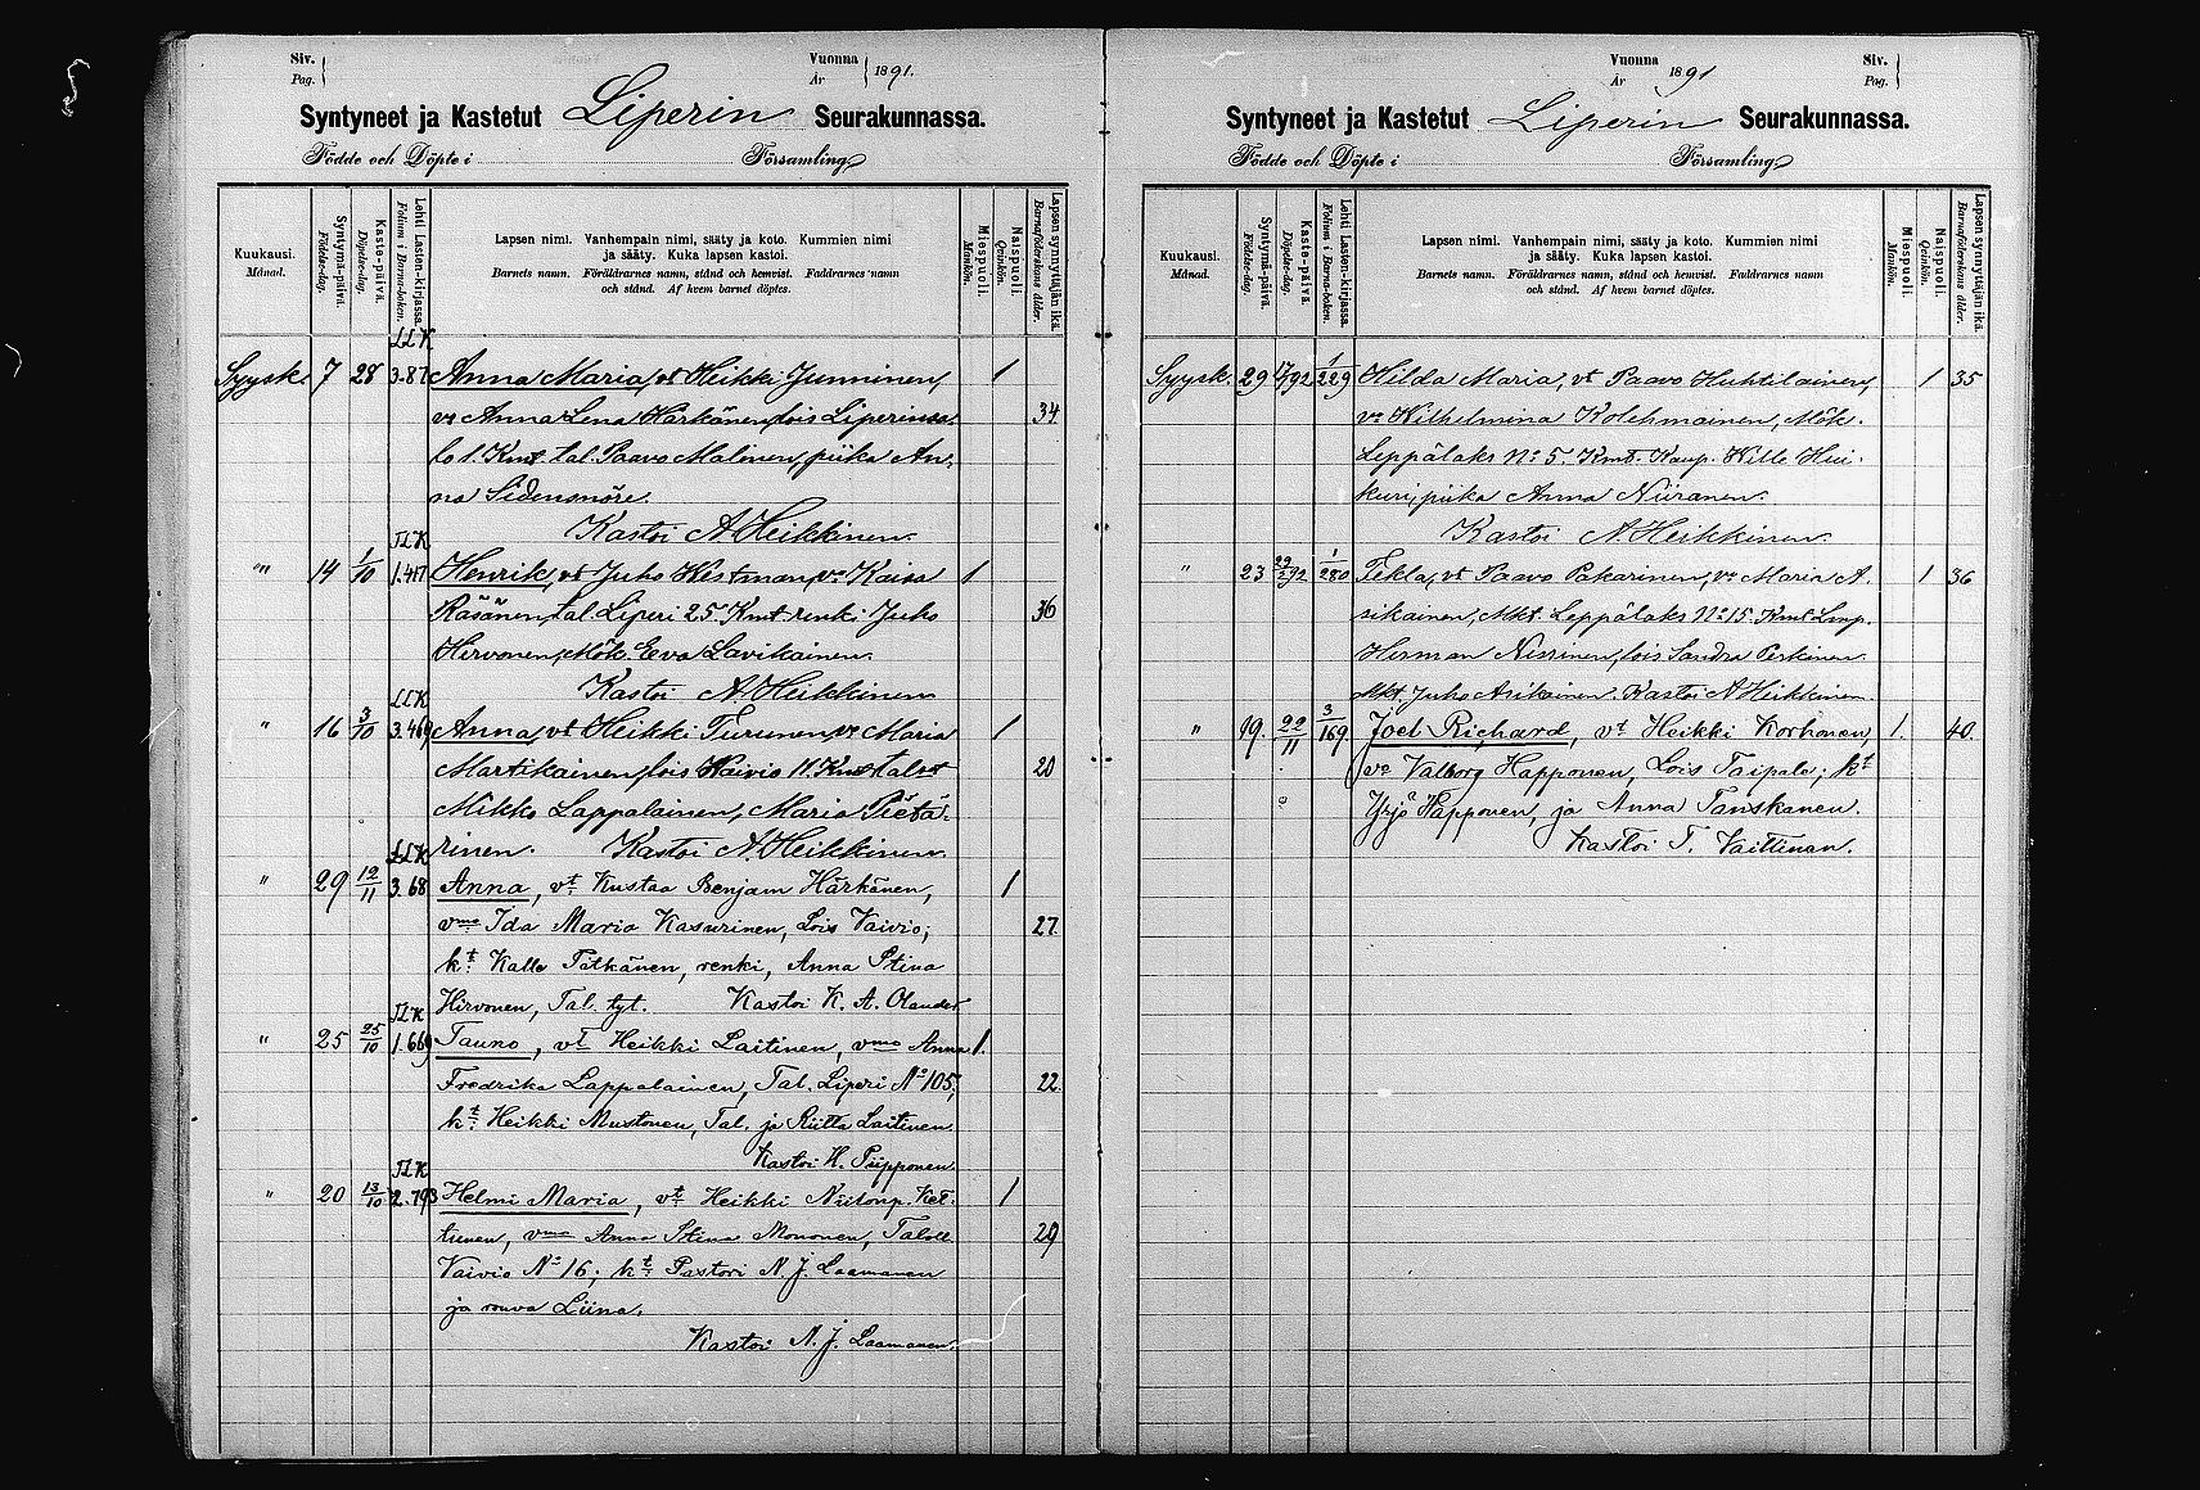 Siv.
Pag.
Vuonna
År
1891.
Syntyneet ja Kastetut Liperin Seurakunnassa.
Födde och Döpte i Församling
Kuukausi.
Månad.
Syntymä-päivä.
Födelse-dag.
Kaste-päivä.
Döpelse-dag.
Lehti Lasten-kirjassa.
Folium i Barna-boken.
Lapsen nimi. Vanhempain nimi, sääty ja koto. Kummien nimi
ja sääty. Kuka lapsen kastoi.
Barnets namn. Föräldrarnes namn, stånd och hemvist. Faddrarnes namn
och stånd. Af hvem barnet döptes.
Miespuoli.
Mankön.
Naispuoli.
Qvinkön.
Lapsen synnyttäjän ikä.
Barnaföderskans ålder.
LLK
Syysk. 7 28 3.87 Anna Maria, vt Heikki Junninen, 1
va Anna Lena Härkönen, lois Liperinsa- 34
lo 1. Kmt. tal. Paavo Malinen, piika An-
na Sidensnöre.
Kastoi A. Heikkinen.
TLK
" 14 1/10 1.417 Henrik, vt Juho Westman, va Kaisa 1
Räsänen, tal. Liperi 25. Kmt. renki Juho 36
Hirvonen, Mök. Eva Lavikainen.
Kastoi A. Heikkinen
LLK
" 16 3/10 3.469 Anna, vt Heikki Turunen, va Maria 1
Martikainen, lois Waivio 11. Kmt talst 20
Mikko Lappalainen, Maria Pietä-
rinen. Kastoi A. Heikkinen.
LLK
" 29 12/11 3.68 Anna, vt Kustaa Benjam Härkönen, 1
vmo Ida Maria Kasurinen, Lois Vaivio; 27.
kt: Kalle Pitkänen, renki, Anna Stina
Hirvonen, Tal. tyt. Kastoi K. A. Olander
TLK
" 25 25/10 1.669 Tauno, vt Heikki Laitinen, vmo Anna 1.
Fredrika Lappalainen, Tal. Liperi No 105; 22.
kt: Heikki Mustonen, Tal. ja Riitta Laitinen.
Kastoi H. Piipponen.
TLK
" 20 13/10 2.793 Helmi Maria, vt Heikki Niilonp. Ket- 1
tunen, vmo Anna Stina Mononen, Taloll. 29
Vaivio No 16; kt: Pastori N. J. Laamanen
ja rouva Liina.
Kastoi N. J. Laamanen.
Vuonna
År
1891
Siv.
Pag.
Syntyneet ja Kastetut Liperin Seurakunnassa.
Födde och Döpte i Församling
Kuukausi.
Månad.
Syntymä-päivä.
Födelse-dag.
Kaste-päivä.
Döpelse-dag.
Lehti Lasten-kirjassa.
Folium i Barna-boken.
Lapsen nimi. Vanhempain nimi, sääty ja koto. Kummien nimi
ja sääty. Kuka lapsen kastoi.
Barnets namn. Föräldrarnes namn, stånd och hemvist. Faddrarnes namn
och stånd. Af hvem barnet döptes.
Miespuoli.
Mankön.
Naispuoli.
Qvinkön.
Lapsen synnyttäjän ikä.
Barnaföderskans ålder.
Syysk. 29 1/229 Hilda Maria, vt Paavo Huhtilainen, 1 35
va Wilhelmina Kolehmainen, Mök.
Leppälaks No 5. Kmt. Kaup. Wille Hui-
kuri, piika Anna Niiranen.
Kastoi A. Heikkinen.
" 23 1/280 Tekla, vt Paavo Pakarinen, va Maria A- 1 36
sikainen, Mkt. Leppälaks No 15. Kmt Lmp.
Herman Nissinen, lois Sandra Perkinen.
Mkt. Juho Asikainen. Kastoi A Heikkinen.
" 19. 22/11 3/169. Joel Richard, vt Heikki Korhonen, 1. 40.
va Valborg Happonen, Lois Taipale; kt
Yrjö Happonen, ja Anna Tanskanen.
Kastoi T. Vaittinen.